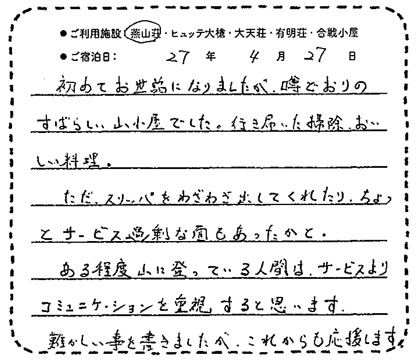 ●ご利用施設 燕山荘・ヒュッテ大槍・大天荘・有明荘・合戦小屋
●ご宿泊日： 27 年 4 月 27 日
初めてお世話になりましたが、噂どおりの
すばらしい山小屋でした。行き届いた掃除、おい
しい料理。
ただ、スリッパをわざわざ出してくれたり、ちょっ
とサービス過剰な面もあったかと。
ある程度山に登っている人間は、サービスより
コミュニケーションを重視すると思います。
難かしい事を書きましたが、これからも応援します